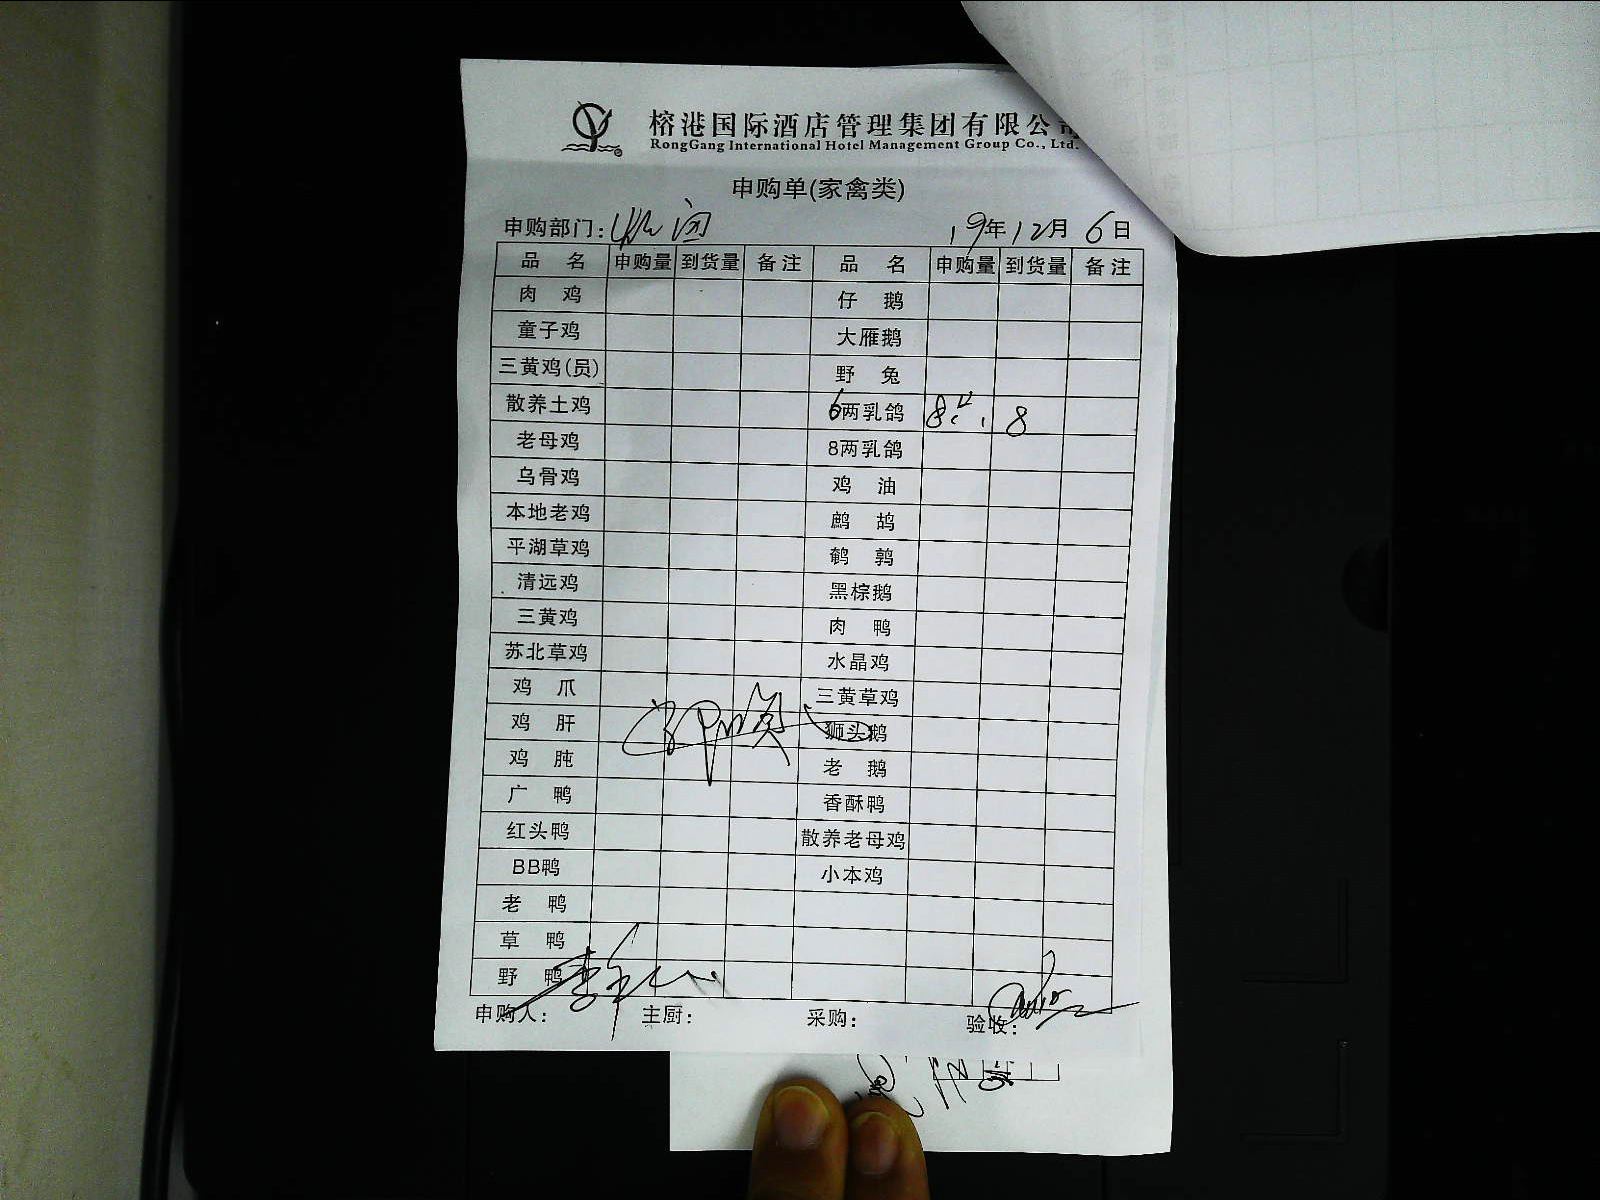 榕港国际酒店管理集团有限公司
RongGang International Hotel Management Group Co., Ltd.
申购单(家禽类)
申购部门: 19年12月6日
品名 申购量 到货量 备注 品名 申购量 到货量 备注
肉鸡 仔鹅
童子鸡 大雁鹅
三黄鸡(员) 野兔
散养土鸡 6两乳鸽 8 8
老母鸡 8两乳鸽
乌骨鸡 鸡油
本地老鸡 鹧鸪
平湖草鸡 鹌鹑
清远鸡 黑棕鹅
三黄鸡 肉鸭
苏北草鸡 水晶鸡
鸡爪 三黄草鸡
鸡肝 狮头鹅
鸡肫 老鹅
广鸭 香酥鸭
红头鸭 散养老母鸡
BB鸭 小本鸡
老鸭
草鸭
野鸭
申购人: 主厨: 采购: 验收: